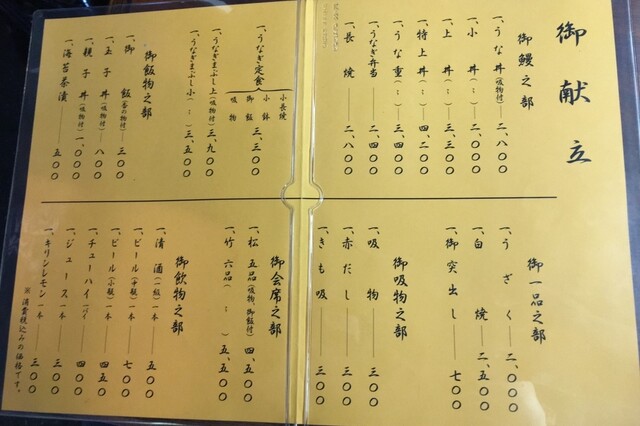 御献立
御鰻之部
一、うな丼(吸物付)二、八〇〇
一、小丼(〃)二、〇〇〇
一、上丼(〃)三、三〇〇
一、特上丼(〃)四、二〇〇
一、うな重(〃)三、四〇〇
一、うなぎ弁当二、四〇〇
一、長焼二、八〇〇
一、うなぎ定食
小長焼
小鉢
御飯
吸物
三、三〇〇
一、うなぎまぶし上(吸物付)三、九〇〇
一、うなぎまぶし小(〃)三、五〇〇
御飯物之部
一、御飯(香の物付)三〇〇
一、玉子丼(吸物付)八〇〇
一、親子丼(吸物付)一、〇〇〇
一、海苔茶漬五〇〇
御一品之部
一、うざく二、〇〇〇
一、白焼二、五〇〇
一、御突出し七〇〇
御吸物之部
一、吸物三〇〇
一、赤だし三〇〇
一、きも吸三〇〇
御会席之部
一、松五品(吸物、御飯付)四、五〇〇
一、竹六品(〃)五、五〇〇
御飲物之部
一、清酒(一級)一本五〇〇
一、ビール(中瓶)一本七〇〇
一、ビール(小瓶)一本四五〇
一、チューハイ一パイ四〇〇
一、ジュース一本三〇〇
一、キリンレモン一本三〇〇
※消費税込みの価格です。